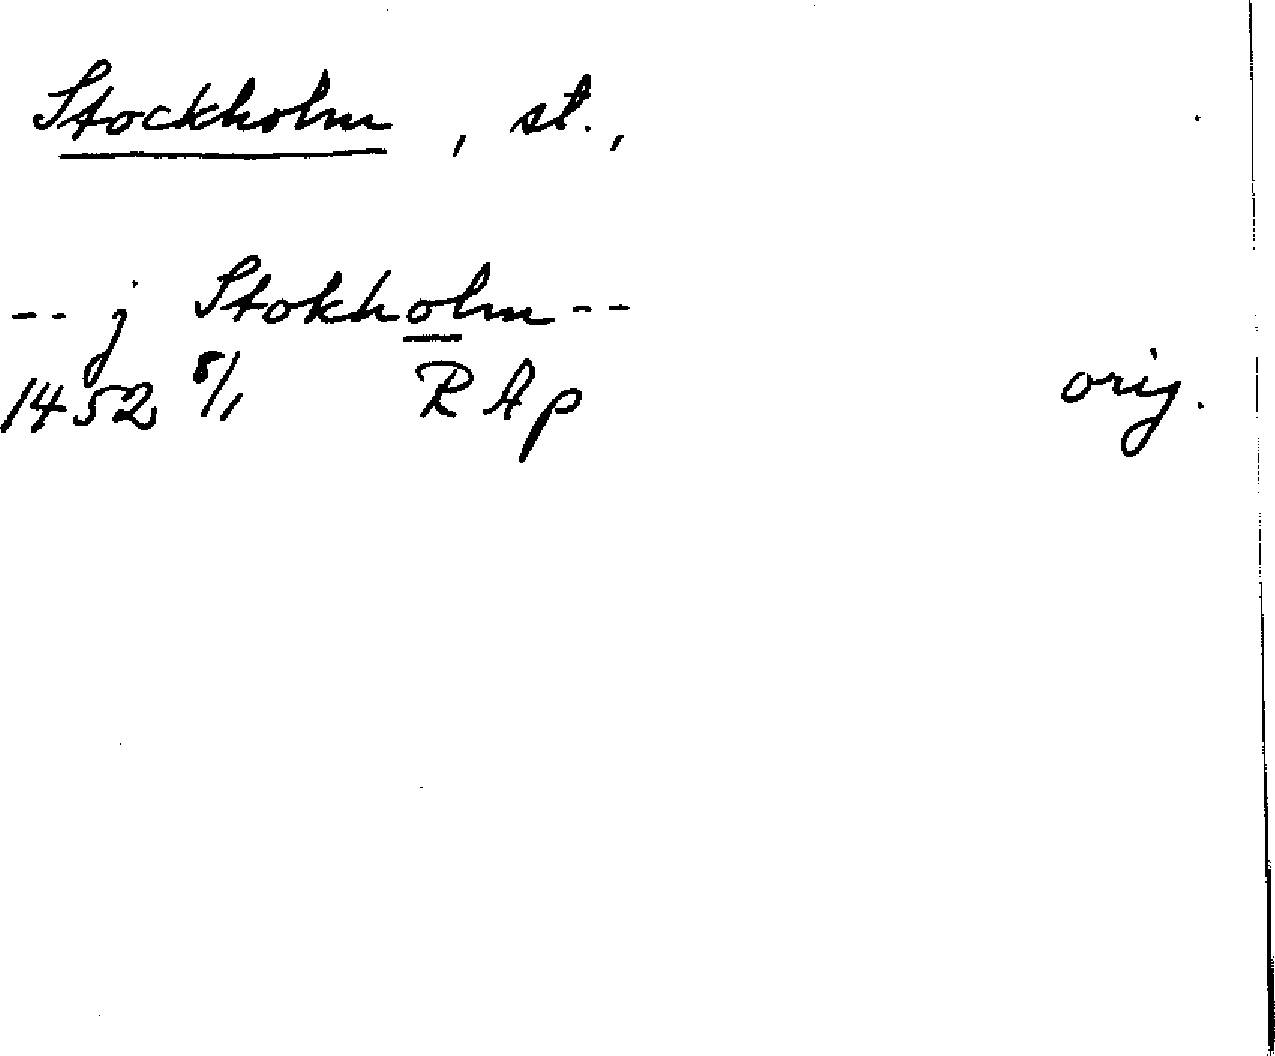 Stockholm, st.,
-- j Stokholm --
1452 8/1 RAp orig.